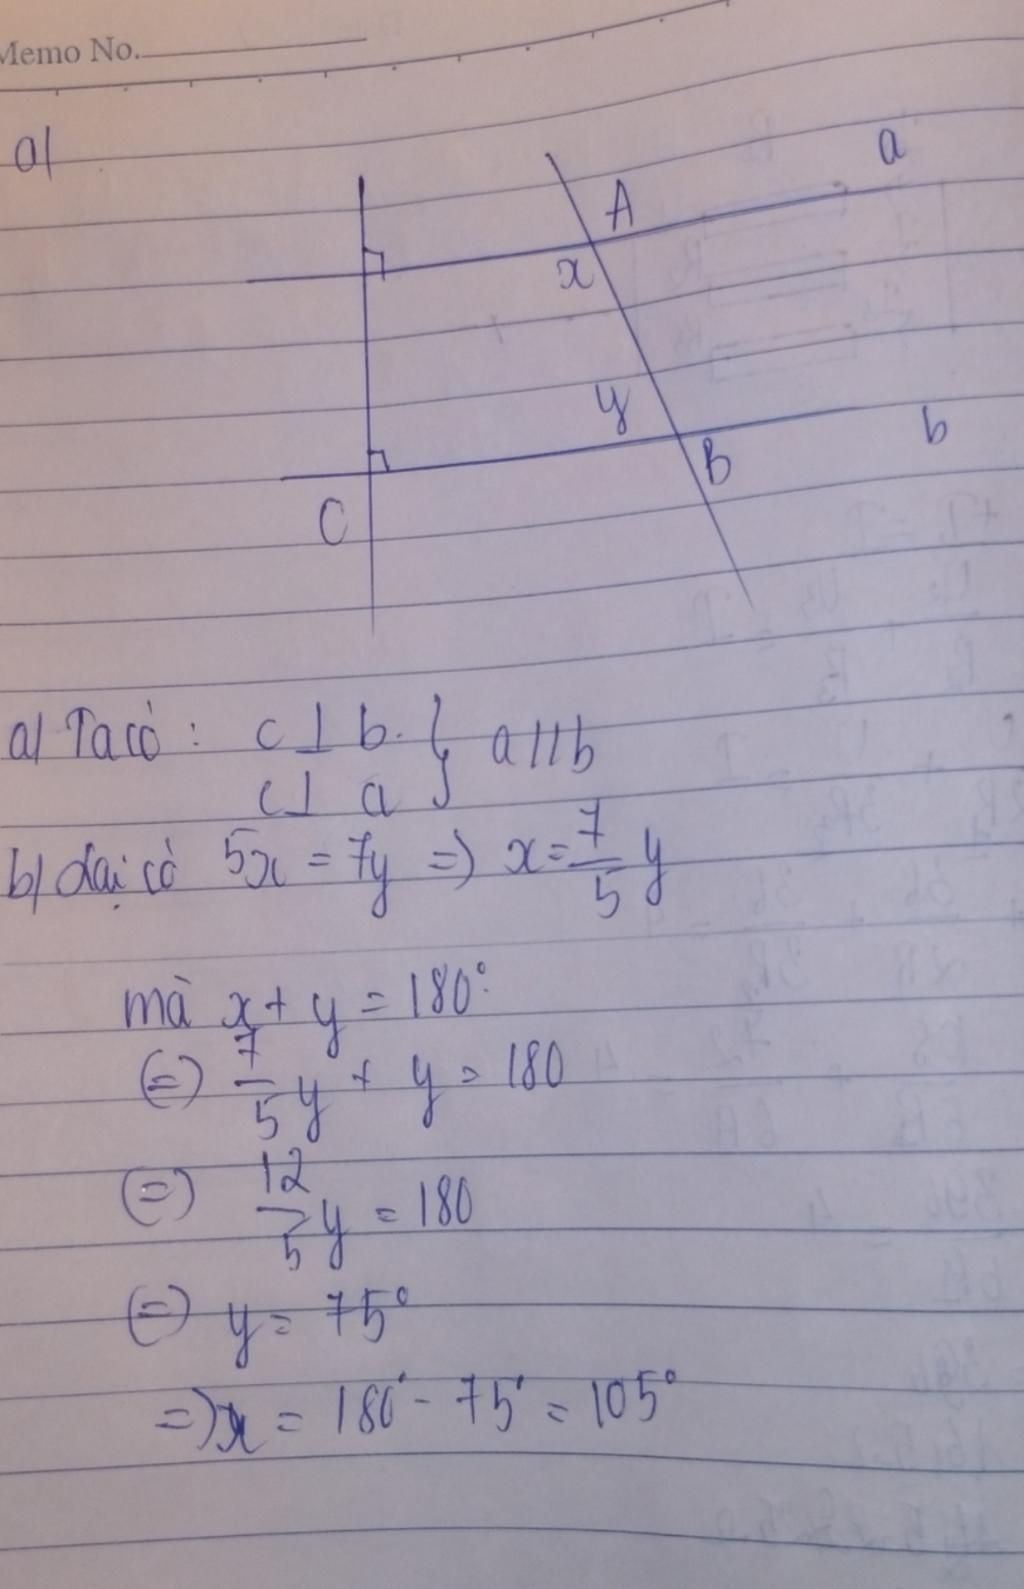 Memo No.
a)
a
A
x
y
b
B
C
a) Ta có : c ⊥ b. } a // b
c ⊥ a
b) Lại có 5x = 7y => x = 7/5 y
mà x + y = 180°
(=) 7/5 y + y = 180
(=) 12/5 y = 180
(=) y = 75°
=) x = 180° - 75° = 105°